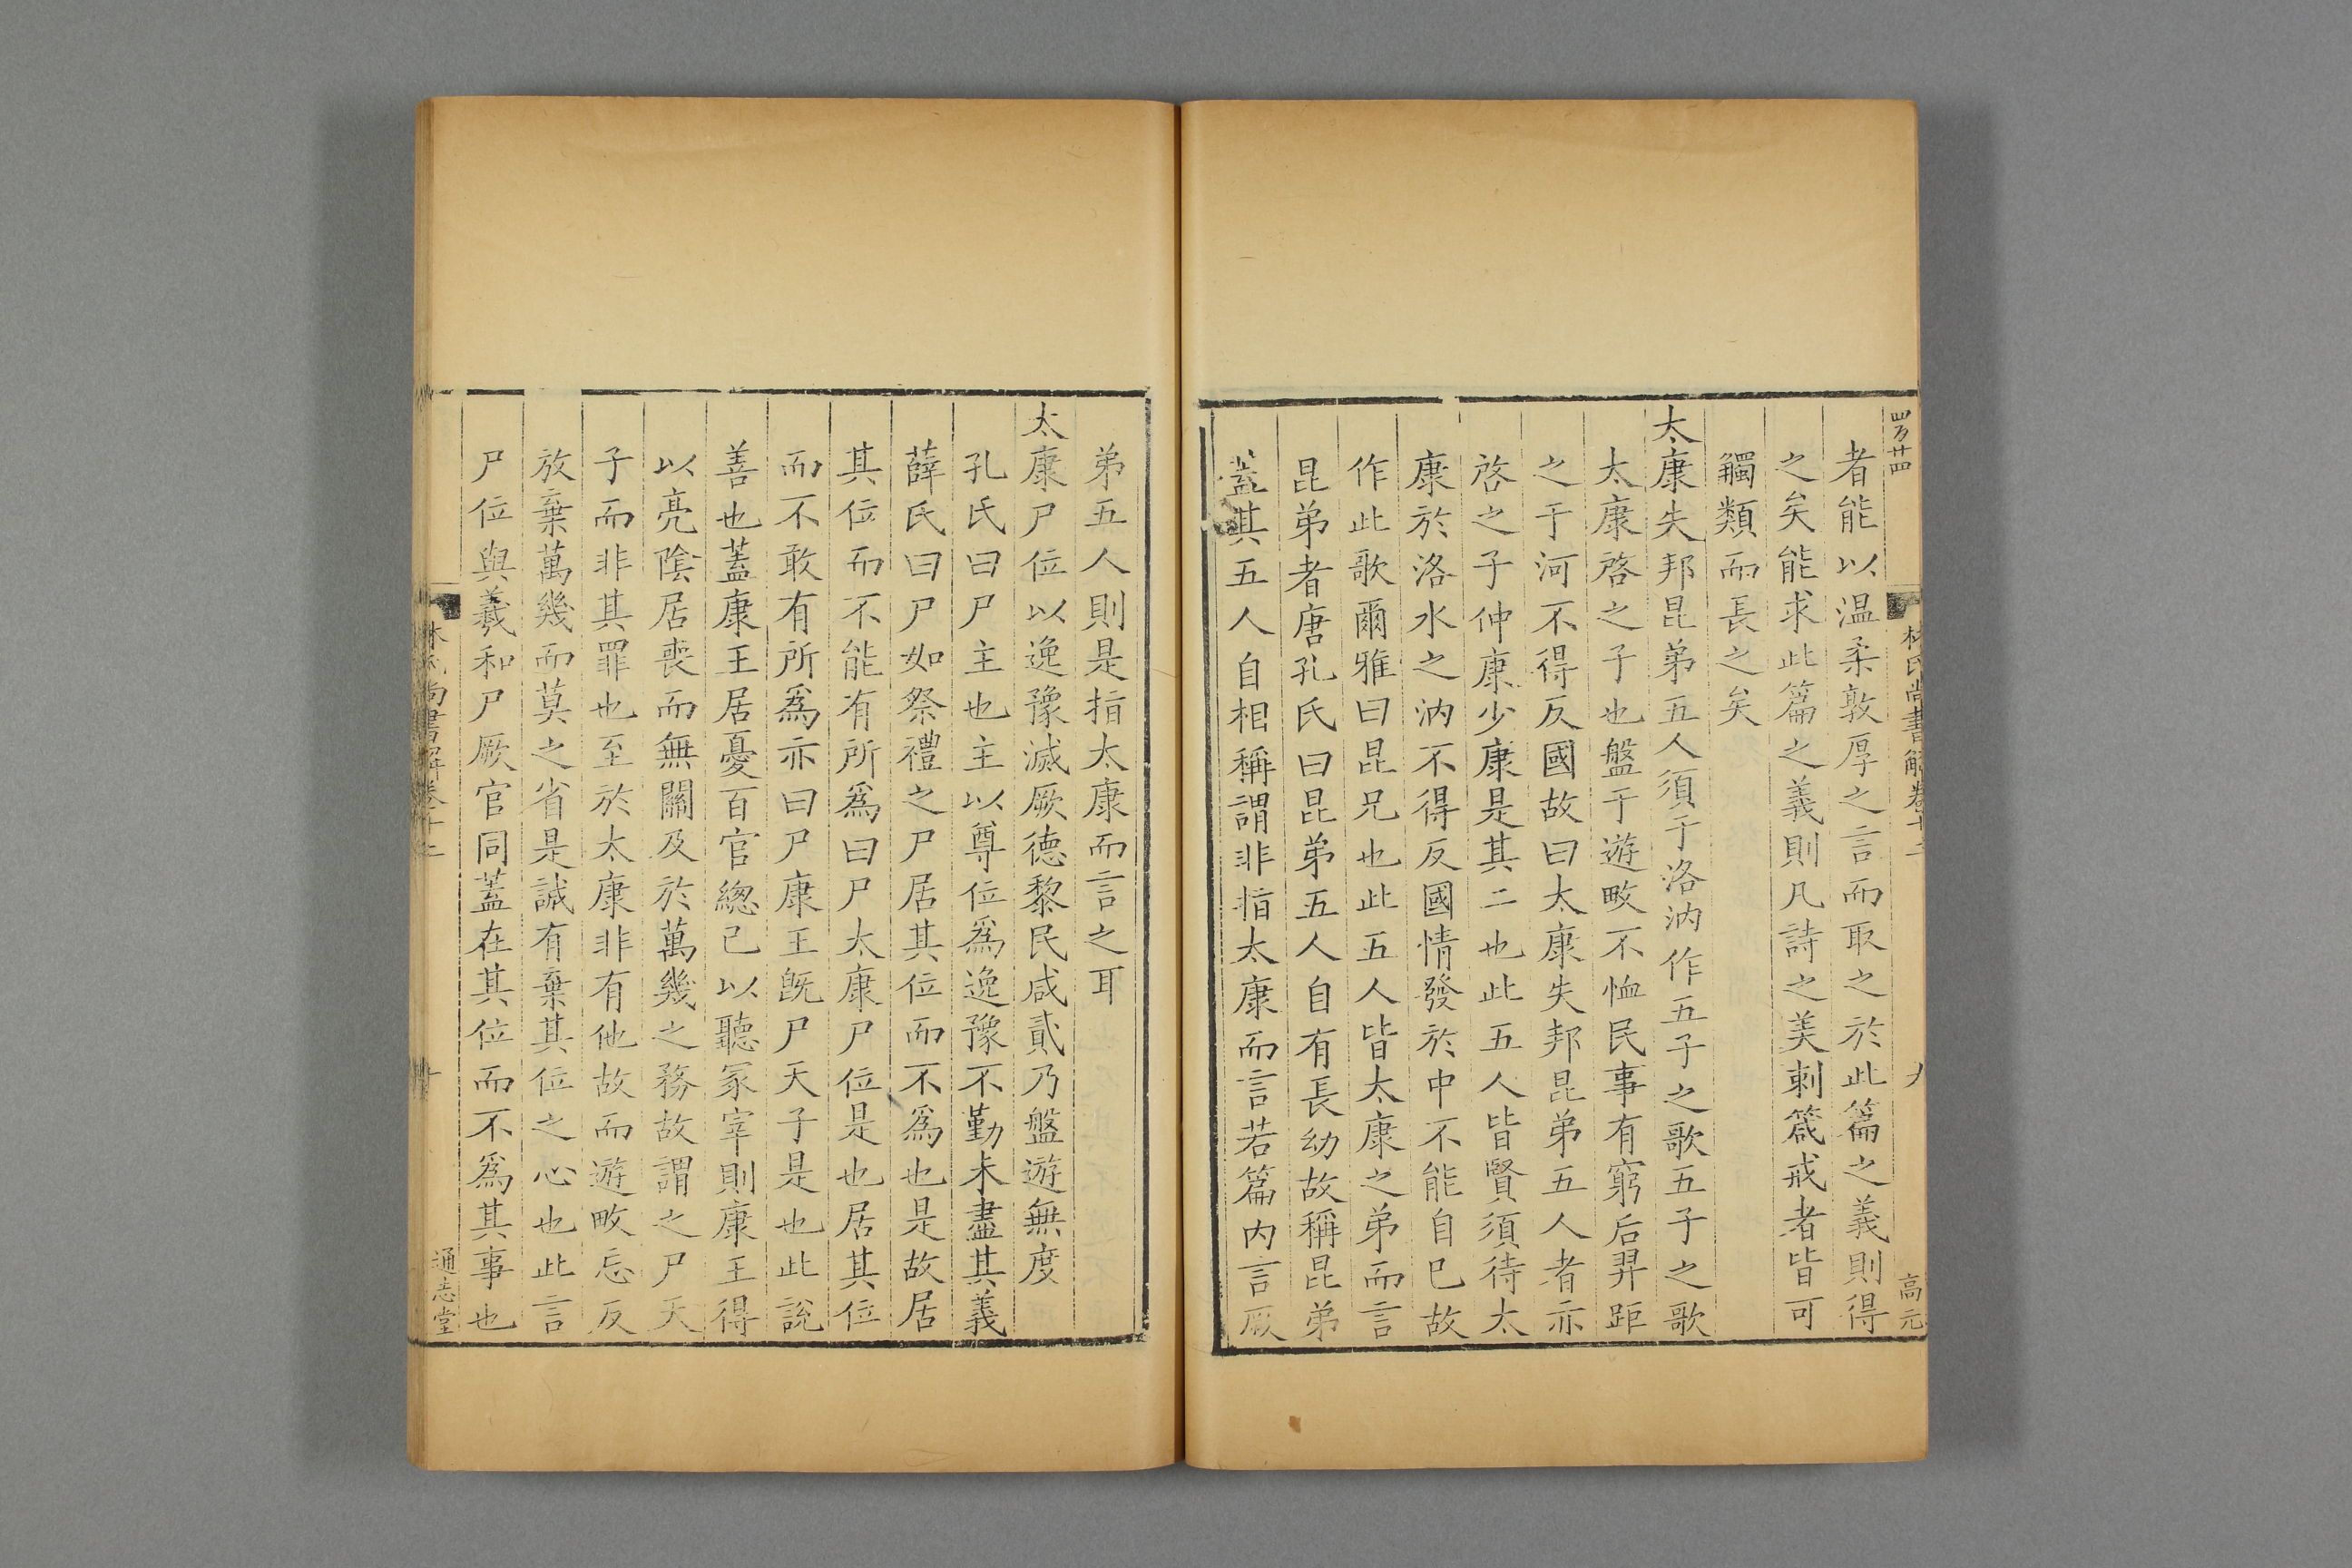 者能以温柔敦厚之言而取之於此篇之義則得
之矣能求此篇之義則凡詩之美刺箴戒者皆可
觸類而長之矣
太康失邦昆弟五人須于洛汭作五子之歌五子之歌
太康啓之子也盤于遊畋不恤民事有窮后羿距
之于河不得反國故曰太康失邦昆弟五人者亦
啓之子仲康少康是其二也此五人皆賢須待太
康於洛水之汭不得反國情發於中不能自已故
作此歌爾雅曰昆兄也此五人皆太康之弟而言
昆弟者唐孔氏曰昆弟五人自有長幼故稱昆弟
蓋其五人自相稱謂非指太康而言若篇内言厥
林氏尚書解卷十二
九
高元
弟五人則是指太康而言之耳
太康尸位以逸豫滅厥德黎民咸貳乃盤遊無度
孔氏曰尸主也主以尊位爲逸豫不勤未盡其義
薛氏曰尸如祭禮之尸居其位而不爲也是故居
其位而不能有所爲曰尸太康尸位是也居其位
而不敢有所爲亦曰尸康王旣尸天子是也此說
善也蓋康王居憂百官緫已以聽冢宰則康王得
以亮陰居喪而無關及於萬幾之務故謂之尸天
子而非其罪也至於太康非有他故而遊畋忘反
放棄萬幾而莫之省是誠有棄其位之心也此言
尸位與羲和尸厥官同蓋在其位而不爲其事也
林氏尚書解卷十二
十
通志堂